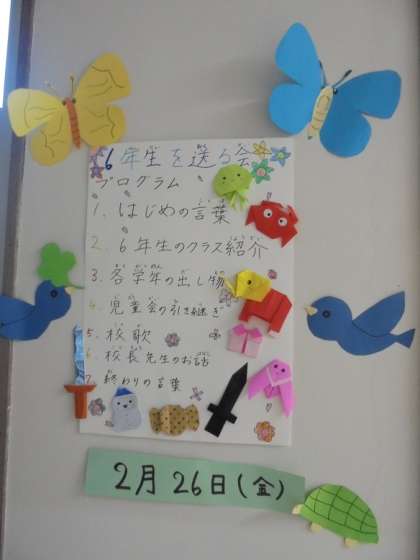 6年生を送る会
プログラム
1. はじめの言葉
2. 6年生のクラス紹介
3. 各学年の出し物
4. 児童会の引き継ぎ
5. 校歌
6. 校長先生のお話
7. 終わりの言葉
2月26日(金)